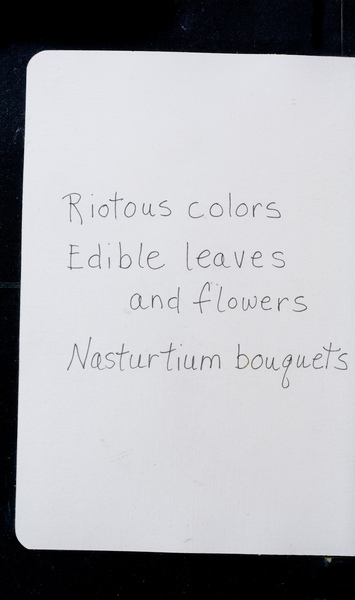 Riotous colors
Edible leaves
and flowers
Nasturtium bouquets